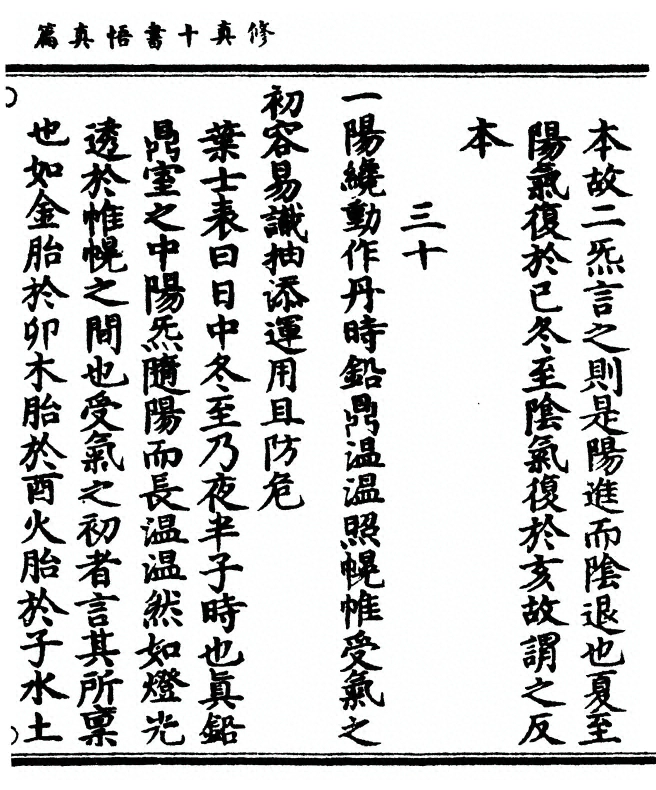 修真十書悟真篇
本故二炁言之則是陽進而陰退也夏至
陽氣復於巳冬至陰氣復於亥故謂之反
本
三十
一陽纔動作丹時鉛鼎温温照幌帷受氣之
初容易識抽添運用且防危
葉士表曰日中冬至乃夜半子時也眞鉛
鼎室之中陽炁隨陽而長温温然如燈光
透於帷幌之間也受氣之初者言其所稟
也如金胎於卯木胎於酉火胎於子水土